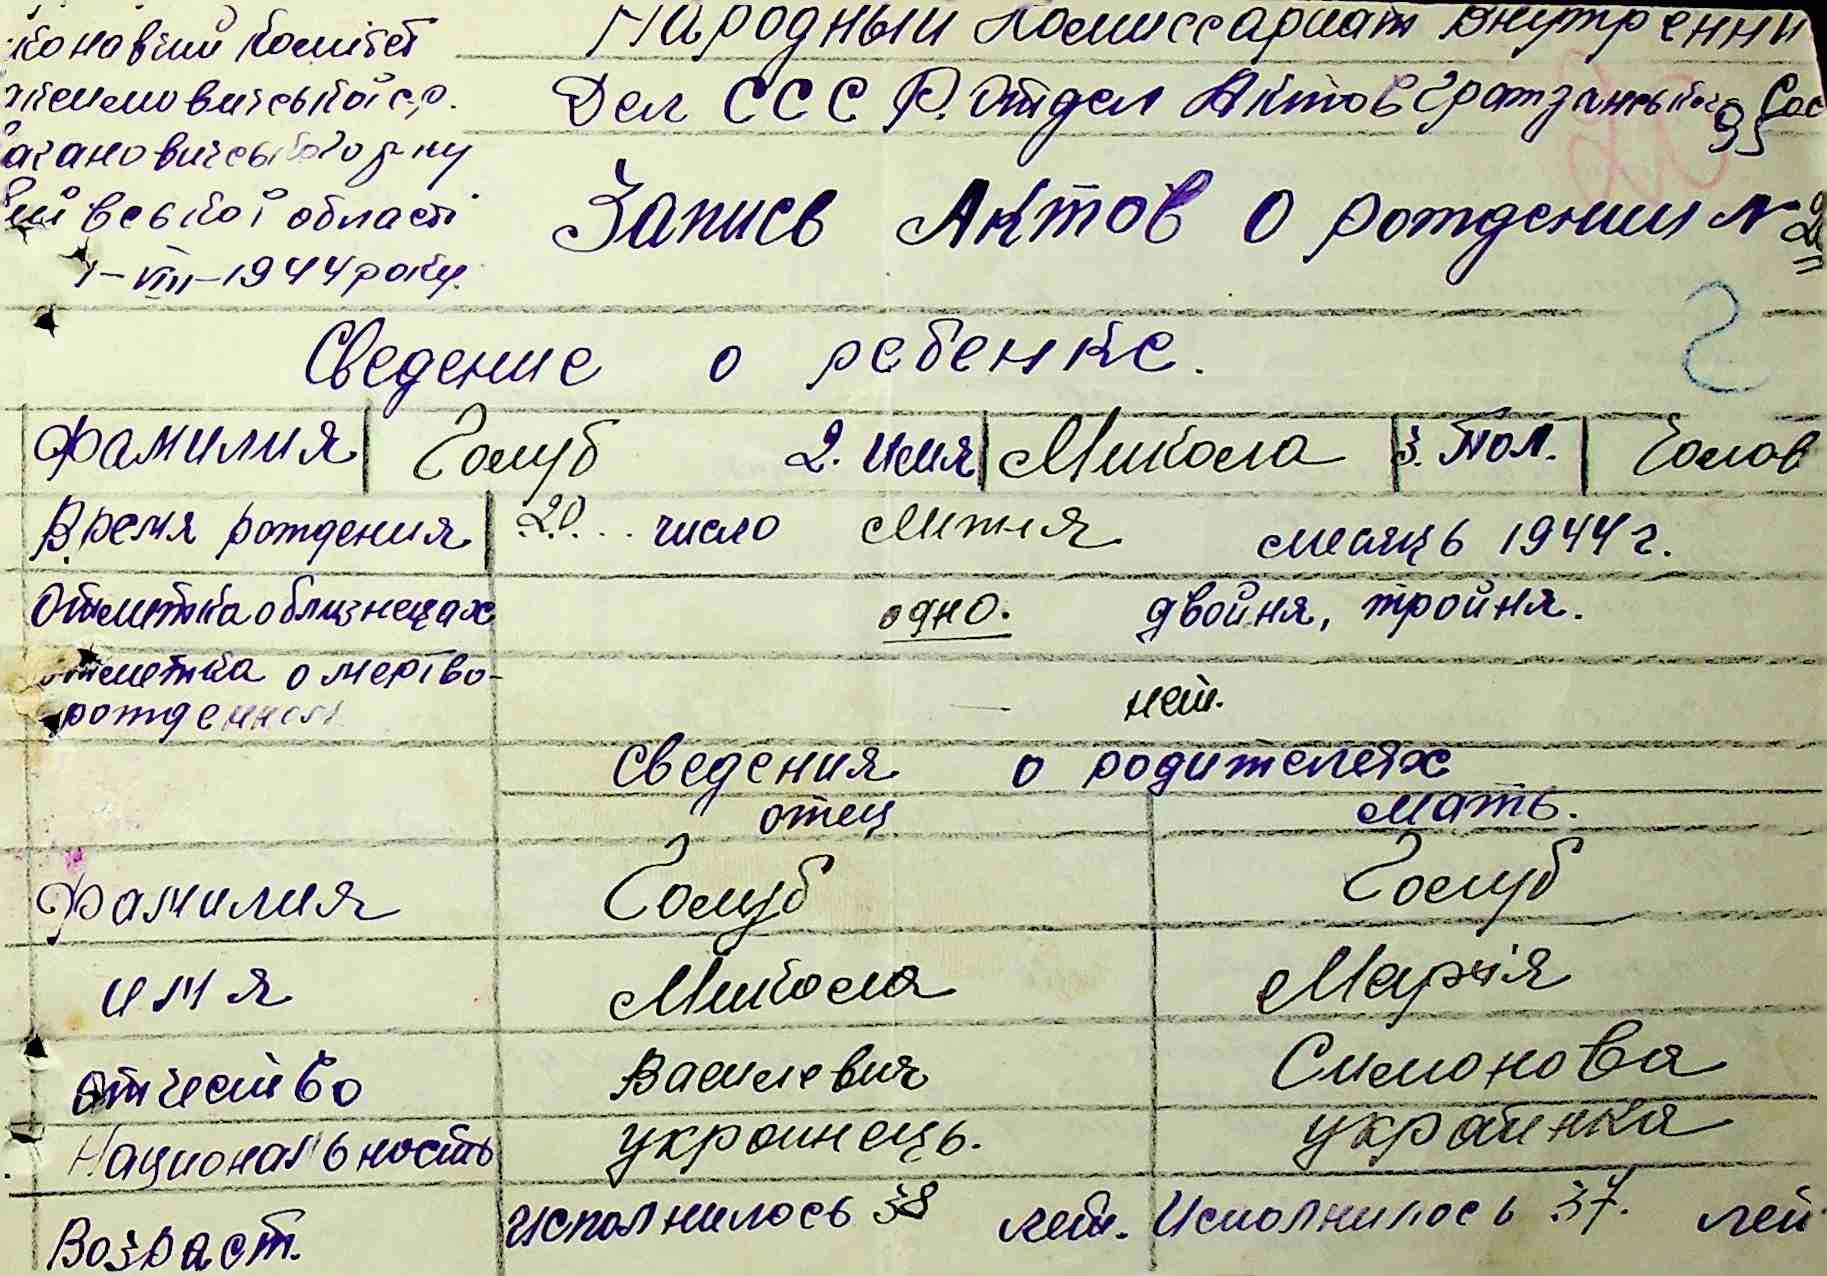 конавчий Комітет
с.р.
району
області
1-VIII-1944 року.
Народный Комиссариат Внутренни
Дел СССР. Отдел Актов Гражданського Сос
Запись Актов о рождении №
Сведение о ребенке.
Фамилия Голуб 2. имя Микола 3. Пол. Чолов
Время рождения 20 число Липня месяць 1944 г.
Отметка о близнецах одно. двойня, тройня.
отметка о мертво-
рожденном нет.
Сведения о родителях
отец мать.
Фамилия Голуб Голуб
имя Микола Марія
отчество Василевич Симонова
Национальность украинець. украинка
Возраст. исполнилось 38 лет. Исполнилось 37. лет